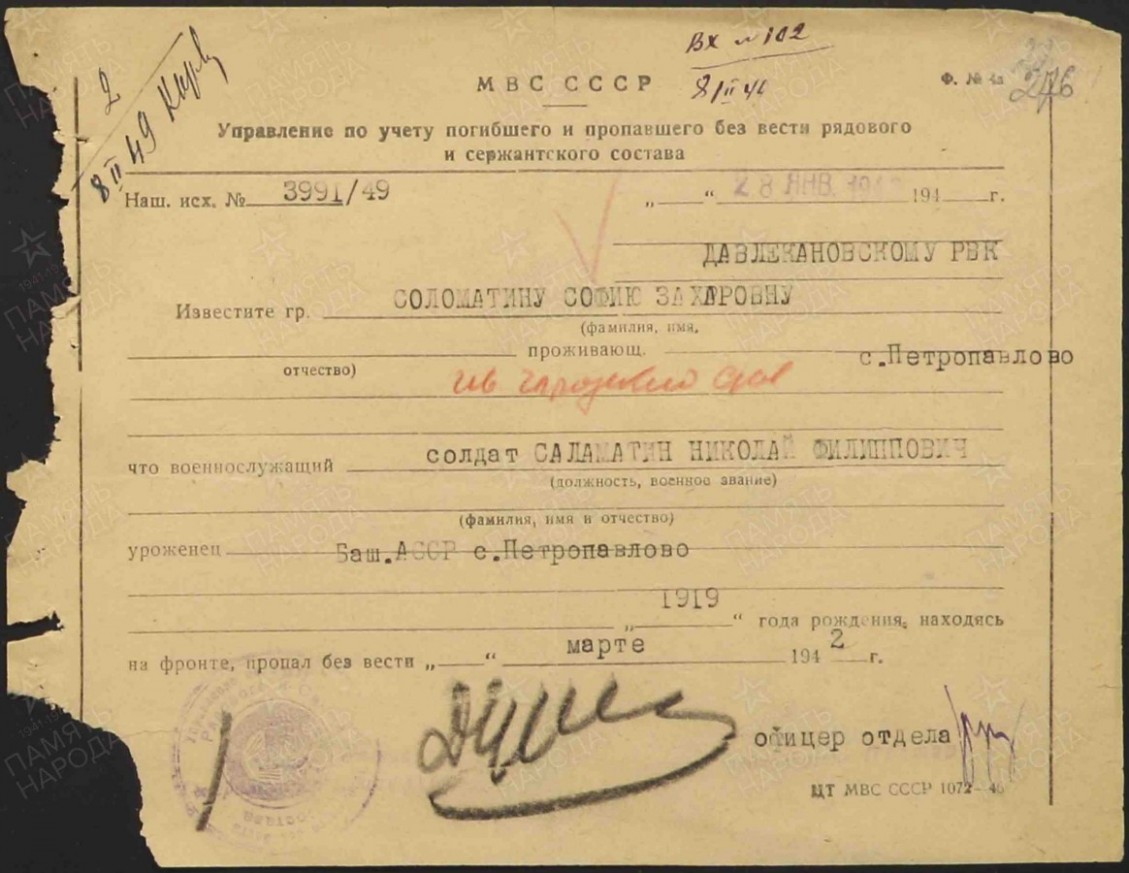 ВХ № 102
8/II 49
2
8 II 49
МВС СССР
Ф. № 4а
Управление по учету погибшего и пропавшего без вести рядового
и сержантского состава
Наш. исх. № 3991/49 „ “ 28 ЯНВ. 194 г.
ДАВЛЕКАНОВСКОМУ РВК
Известите гр. СОЛОМАТИНУ СОФИЮ ЗАХАРОВНУ
(фамилия, имя,
проживающ. с.Петропавлово
отчество)
что военнослужащий солдат САЛАМАТИН НИКОЛАЙ ФИЛИППОВИЧ
(должность, военное звание)
(фамилия, имя и отчество)
уроженец Баш.АССР с.Петропавлово
„ 1919 “ года рождения, находясь
на фронте, пропал без вести „ “ марте 1942 г.
офицер отдела
ЦТ МВС СССР 1072—46
ПАМЯТЬ НАРОДА